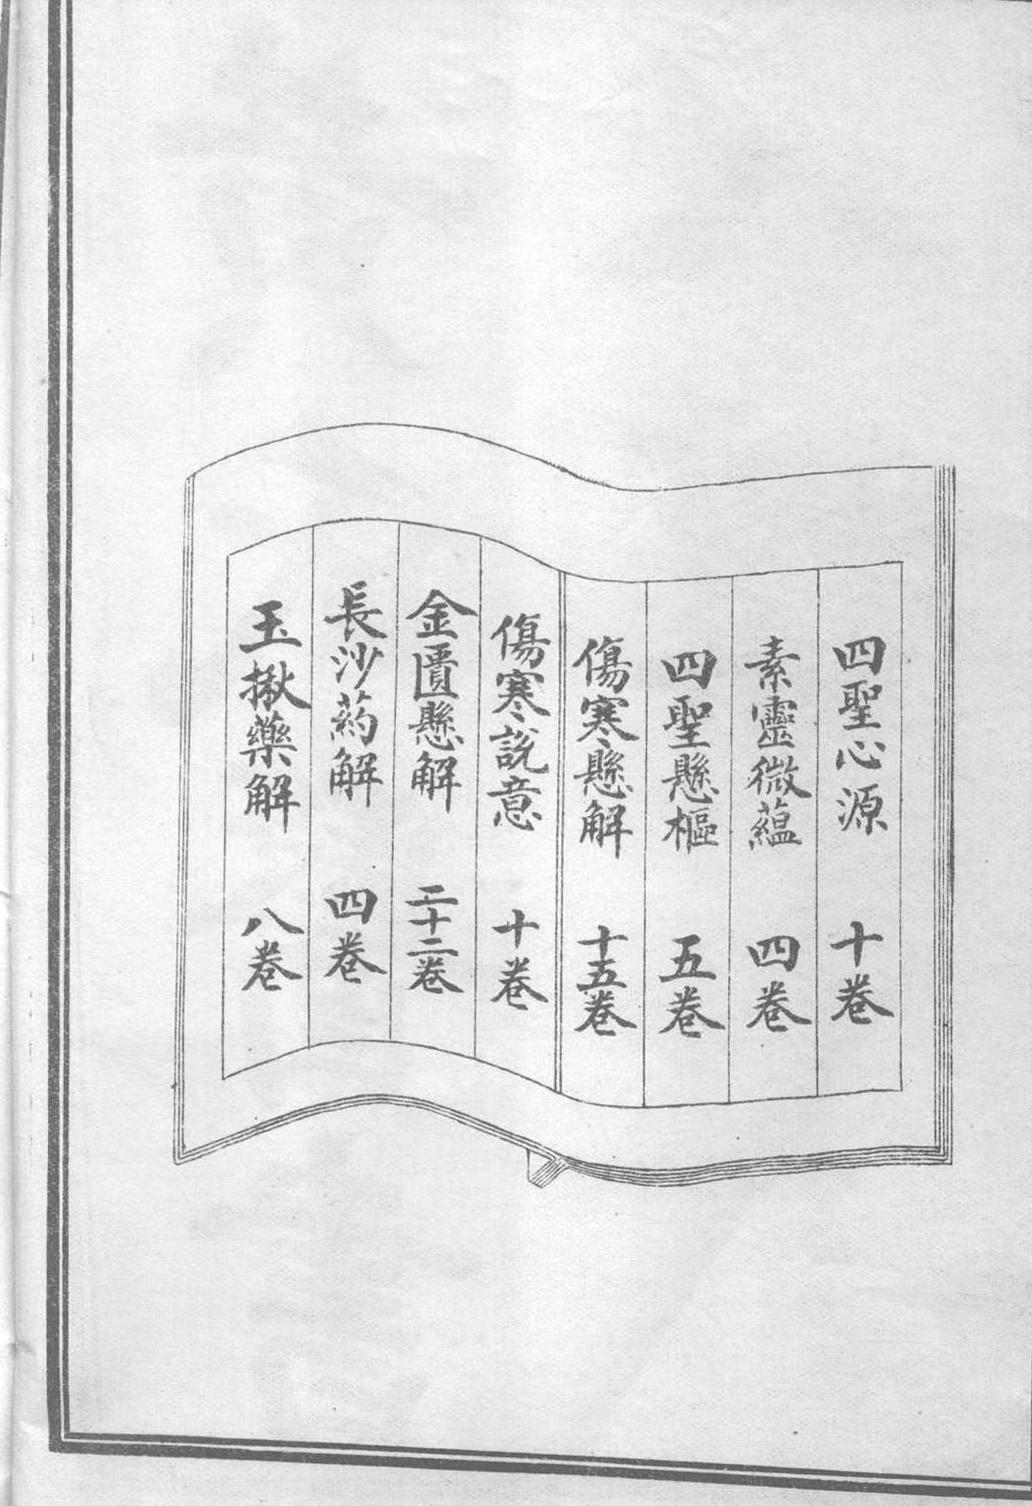 四聖心源 十卷
素靈微蘊 四卷
四聖懸樞 五卷
傷寒懸解 十五卷
傷寒說意 十卷
金匱懸解 二十二卷
長沙葯解 四卷
玉揪藥解 八卷